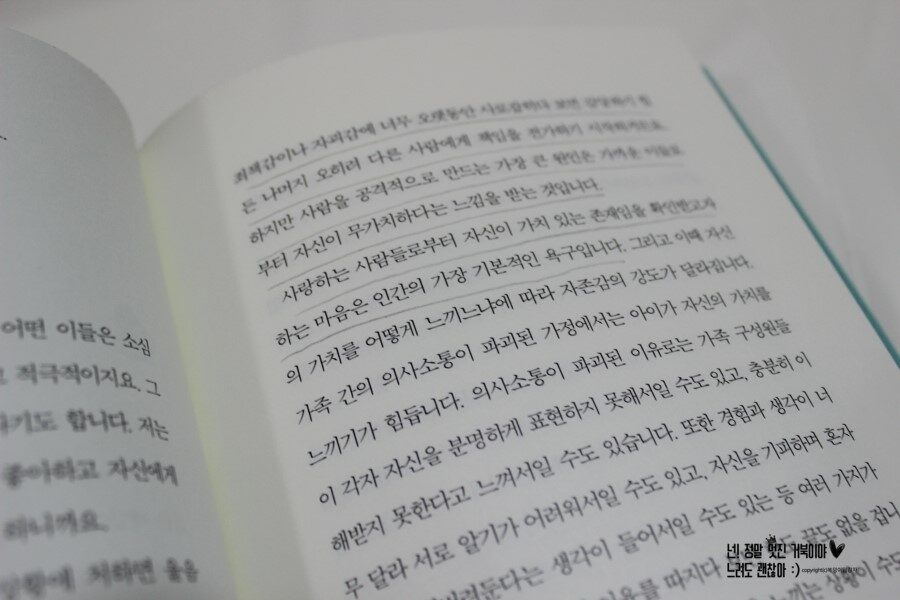 어떤 이들은 소심
고 적극적이지요. 그
기도 합니다. 저는
좋아하고 자신에게
하니까요.
상황에 처하면 울음
죄책감이나 자괴감에 너무 오랫동안 사로잡히다 보면 감당하기 힘
든 나머지 오히려 다른 사람에게 책임을 전가하기 시작하거든요.
하지만 사람을 공격적으로 만드는 가장 큰 원인은 가까운 이들로
부터 자신이 무가치하다는 느낌을 받는 것입니다.
사랑하는 사람들로부터 자신이 가치 있는 존재임을 확인받고자
하는 마음은 인간의 가장 기본적인 욕구입니다. 그리고 이때 자신
의 가치를 어떻게 느끼느냐에 따라 자존감의 강도가 달라집니다.
가족 간의 의사소통이 파괴된 가정에서는 아이가 자신의 가치를
느끼기가 힘듭니다. 의사소통이 파괴된 이유로는 가족 구성원들
이 각자 자신을 분명하게 표현하지 못해서일 수도 있고, 충분히 이
해받지 못한다고 느껴서일 수도 있습니다. 또한 경험과 생각이 너
무 달라 서로 알기가 어려워서일 수도 있고, 자신을 기피하며 혼자
내버려둔다는 생각이 들어서일 수도 있는 등 여러 가지가
이유를 따지다 끝도 없을 겁니
는 상황이 수도
넌! 정말 멋진 거북이야
느려도 괜찮아 :)